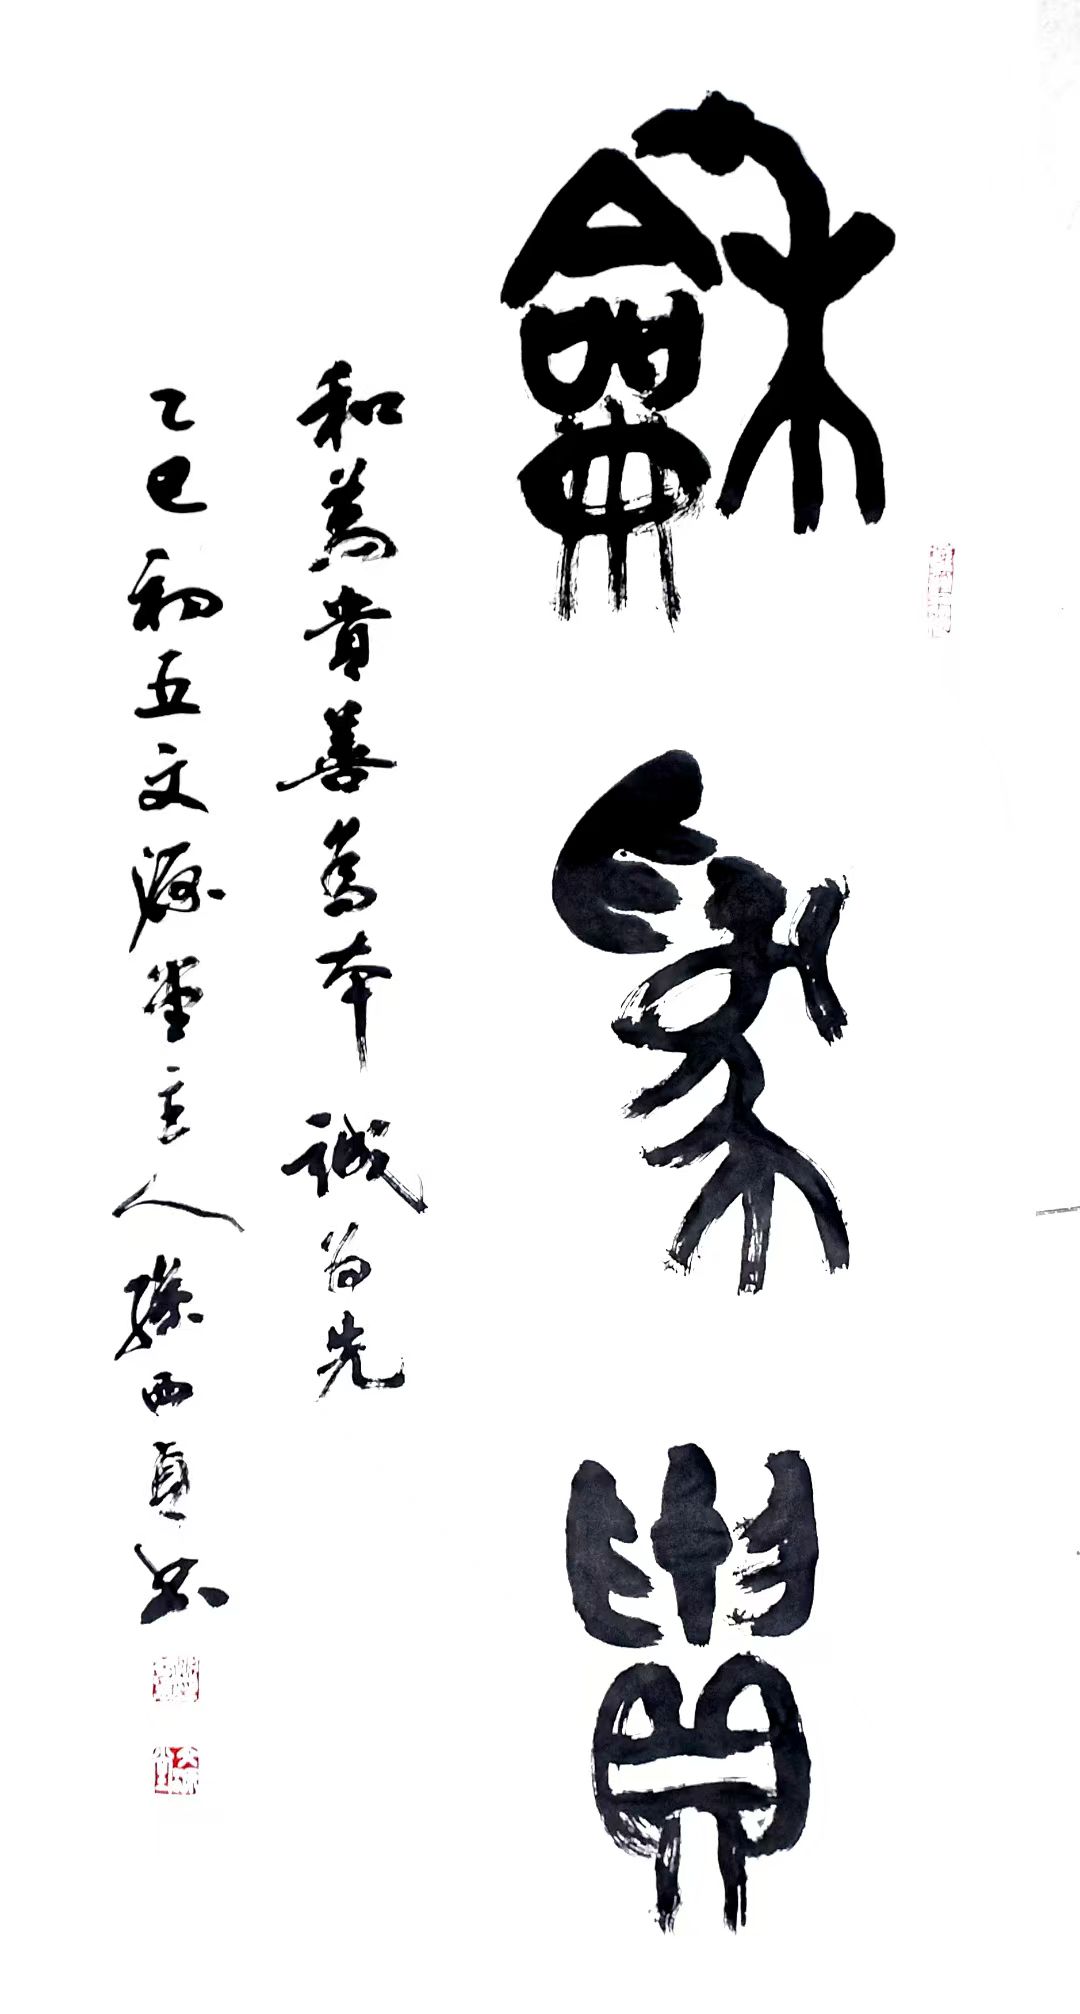 龢為貴
和為貴善為本誠為先
乙巳初五文源堂主人孫西貞書